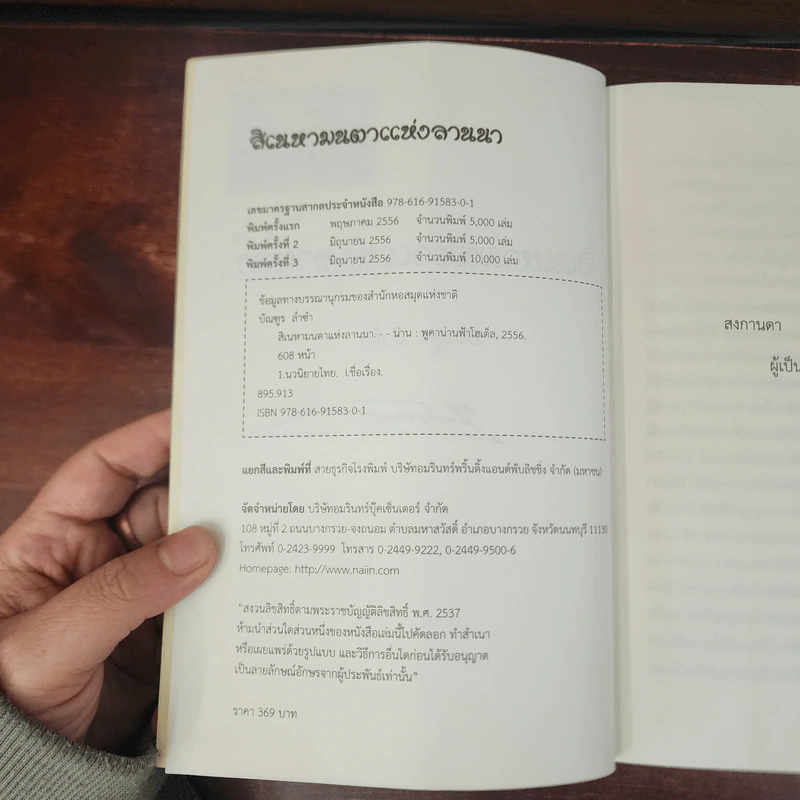 สิเนหามนตาแห่งลานนา
เลขมาตรฐานสากลประจำหนังสือ 978-616-91583-0-1
พิมพ์ครั้งแรก พฤษภาคม 2556 จำนวนพิมพ์ 5,000 เล่ม
พิมพ์ครั้งที่ 2 มิถุนายน 2556 จำนวนพิมพ์ 5,000 เล่ม
พิมพ์ครั้งที่ 3 มิถุนายน 2556 จำนวนพิมพ์ 10,000 เล่ม
ข้อมูลทางบรรณานุกรมของสำนักหอสมุดแห่งชาติ
บัณฑูร ล่ำซำ
สิเนหามนตาแห่งลานนา. - - น่าน : พูคาน่านฟ้าโฮเต็ล, 2556.
608 หน้า
1.นวนิยายไทย. I.ชื่อเรื่อง.
895.913
ISBN 978-616-91583-0-1
แยกสีและพิมพ์ที่ สายธุรกิจโรงพิมพ์ บริษัทอมรินทร์พริ้นติ้งแอนด์พับลิชชิ่ง จำกัด (มหาชน)
จัดจำหน่ายโดย บริษัทอมรินทร์บุ๊คเซ็นเตอร์ จำกัด
108 หมู่ที่ 2 ถนนบางกรวย-จงถนอม ตำบลมหาสวัสดิ์ อำเภอบางกรวย จังหวัดนนทบุรี 11130
โทรศัพท์ 0-2423-9999 โทรสาร 0-2449-9222, 0-2449-9500-6
Homepage: http://www.naiin.com
“สงวนลิขสิทธิ์ตามพระราชบัญญัติลิขสิทธิ์ พ.ศ. 2537
ห้ามนำส่วนใดส่วนหนึ่งของหนังสือเล่มนี้ไปคัดลอก ทำสำเนา
หรือเผยแพร่ด้วยรูปแบบ และวิธีการอื่นใดก่อนได้รับอนุญาต
เป็นลายลักษณ์อักษรจากผู้ประพันธ์เท่านั้น”
ราคา 369 บาท
สงกานดา
ผู้เป็น